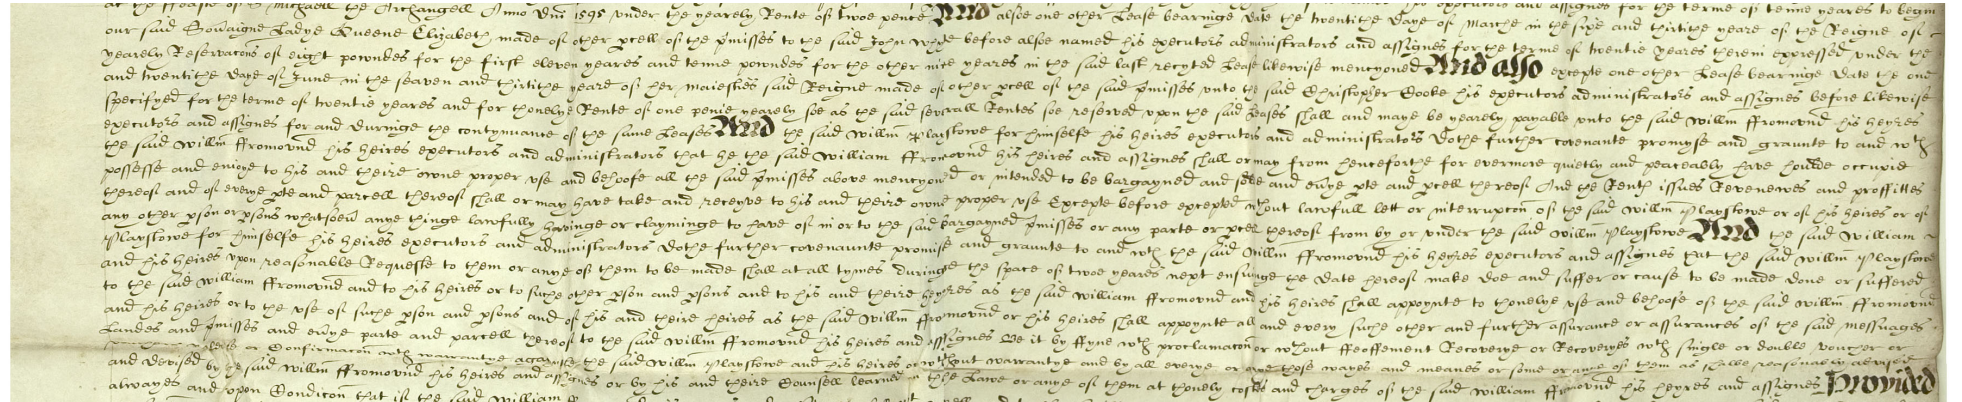 at the ffeaste of St Michaell the Archangell Anno Dni 1595 vnder the yearely Rente of twoe pence And alsoe one other Lease bearinge date the twentithe daye of Marche in the sixe and thirtithe yeare of the Reigne of
our said Soveraigne Ladye Queene Elizabeth made of other pcell of the pmisses to the said John before alsoe named his executors administrators and assignes for the terme of twentie yeares therein expressed vnder the
yearely Reservacons of eight powndes for the first eleven yeares and tenne powndes for the other nine yeares in the said last recyted Lease likewise mencyoned And also excepte one other Lease bearinge date the one
and twentithe daye of June in the seaven and thirtithe yeare of her Maiesties said Reigne made of other pcell of the said pmisses vnto the said Christopher Cooke his executors administrators and assignes before likewise
specifyed for the terme of twentie yeares and for thonelye Rente of one penie yearely soe as the said severall Rentes soe reserved vpon the said Leases shall and maye be yearely payable vnto the said Willm ffromovnd his heyres
executors and assignes for and duringe the contynuance of the same Leases And the said Willm Playstowe for himselfe his heires executors and administrators dothe further covenante promyse and graunte to and wth
the said Willm ffromovnd his heires executors and administrators that he the said William ffromovnd his heires and assignes shall or may from henceforthe for evermore quietly and peaceably have houlde occupie
possesse and enioye to his and theire owne proper vse and behoofe all the said pmisses above mencyoned or intended to be bargayned and solde and evye pte and pcell thereof And the Rents issues Revenewes and proffittes
thereof and of everye pte and parcell thereof shall or may have take and receyve to his and theire owne proper vse Excepte before excepted wthout lawfull lett or interrupcon of the said Willm Playstowe or of his heires or of
any other pson or psons whatsoevr anye thinge lawfully havinge or clayminge to have of in or to the said bargayned pmisses or any parte or pcell thereof from by or vnder the said Willm Playstowe And the said William
Playstowe for himselfe his heires executors and administrators dothe further covenaunte promise and graunte to and wth the said Willm ffromovnd his heyres executors and assignes that the said Willm Playstowe
and his heires vpon reasonable Requeste to them or anye of them to be made shall at all tymes duringe the space of twoe yeares next ensuinge the date hereof make doe and suffer or cause to be made done or suffered
to the said William ffromovnd and to his heires or to suche other pson and psons and to his and theire heyres as the said William ffromovnd and his heires shall appoynte to thonelye vse and behoofe of the said Willm ffromovnd
and his heires or to the vse of suche pson and psons and of his and theire heires as the said Willm ffromovnd or his heires shall appoynte all and every suche other and further assurance or assurances of the said messuages
Landes and pmisses and evye parte and parcell thereof to the said Willm ffromovnd his heires and assignes Be it by ffyne wth proclamacon or wthout ffeoffement Recoverye or Recoveryes wth single or double voucher or
Release or Confirmacon wth warrantye against the said Willm Playstowe and his heires or wthout warrantye and by all everye or anye those wayes and meanes or some or anye of them as shalbe reasonably advised
and devised by the said Willm ffromovnd his heires and assignes or by his and theire Counsell learned in the Lawe or anye of them at thonely costes and charges of the said William ffromovnd his heyres and assignes Provided
alwayes and vpon Condicon that if the said William